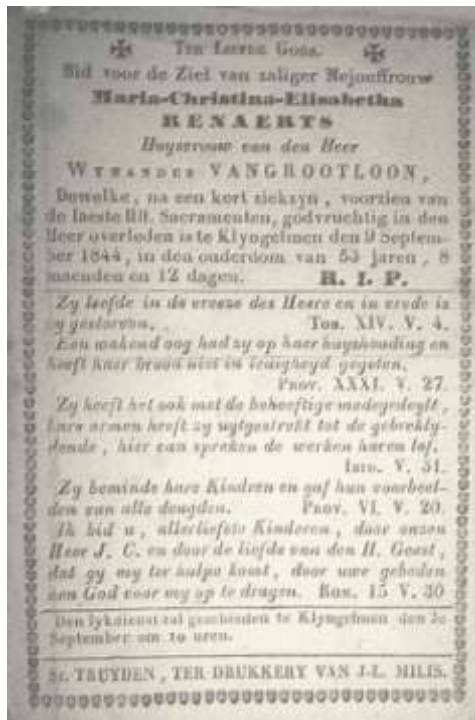 Ter Liefde Gods.
Bid voor de Ziel van zaliger Mejouffrouw
Maria-Christina-Elisabetha
RENAERTS
Huysvrouw van den Heer
WYNANDUS VANGROOTLOON,
Dewelke, na een kort ziekzyn, voorzien van
de laeste HH. Sacramenten, godvruchtig in den
Heer overleden is te Klyngelmen den 9 Septem-
ber 1844, in den ouderdom van 53 jaren, 8
maenden en 12 dagen. R. I. P.
Zy leefde in de vreeze des Heere en in vrede is
zy gestorven. Tob. XIV. V. 4.
Een wakend oog had zy op haer huyshouding en
heeft haer brood niet in ledigheyd gegeten.
Prov. XXXI. V. 27.
Zy heeft het ook met de behoeftige medegedeylt,
hare armen heeft zy uytgestrekt tot de gebrekly-
dende, hier van spreken de werken haren lof.
V. 31.
Zy beminde hare Kinderen en gaf hun voorbeel-
den van alle deugden. Prov. VI. V. 20.
Ik bid u, allerliefste Kinderen, door onzen
Heer J. C. en door de liefde van den H. Geest,
dat gy my ter hulpe komt, door uwe gebeden
aen God voor my op te dragen. Rom. 15 V. 30
Den lykdienst zal geschieden te Klyngelmen den
September om 10 uren.
ST. TRUYDEN, TER DRUKKERY VAN J.-L. MILIS.